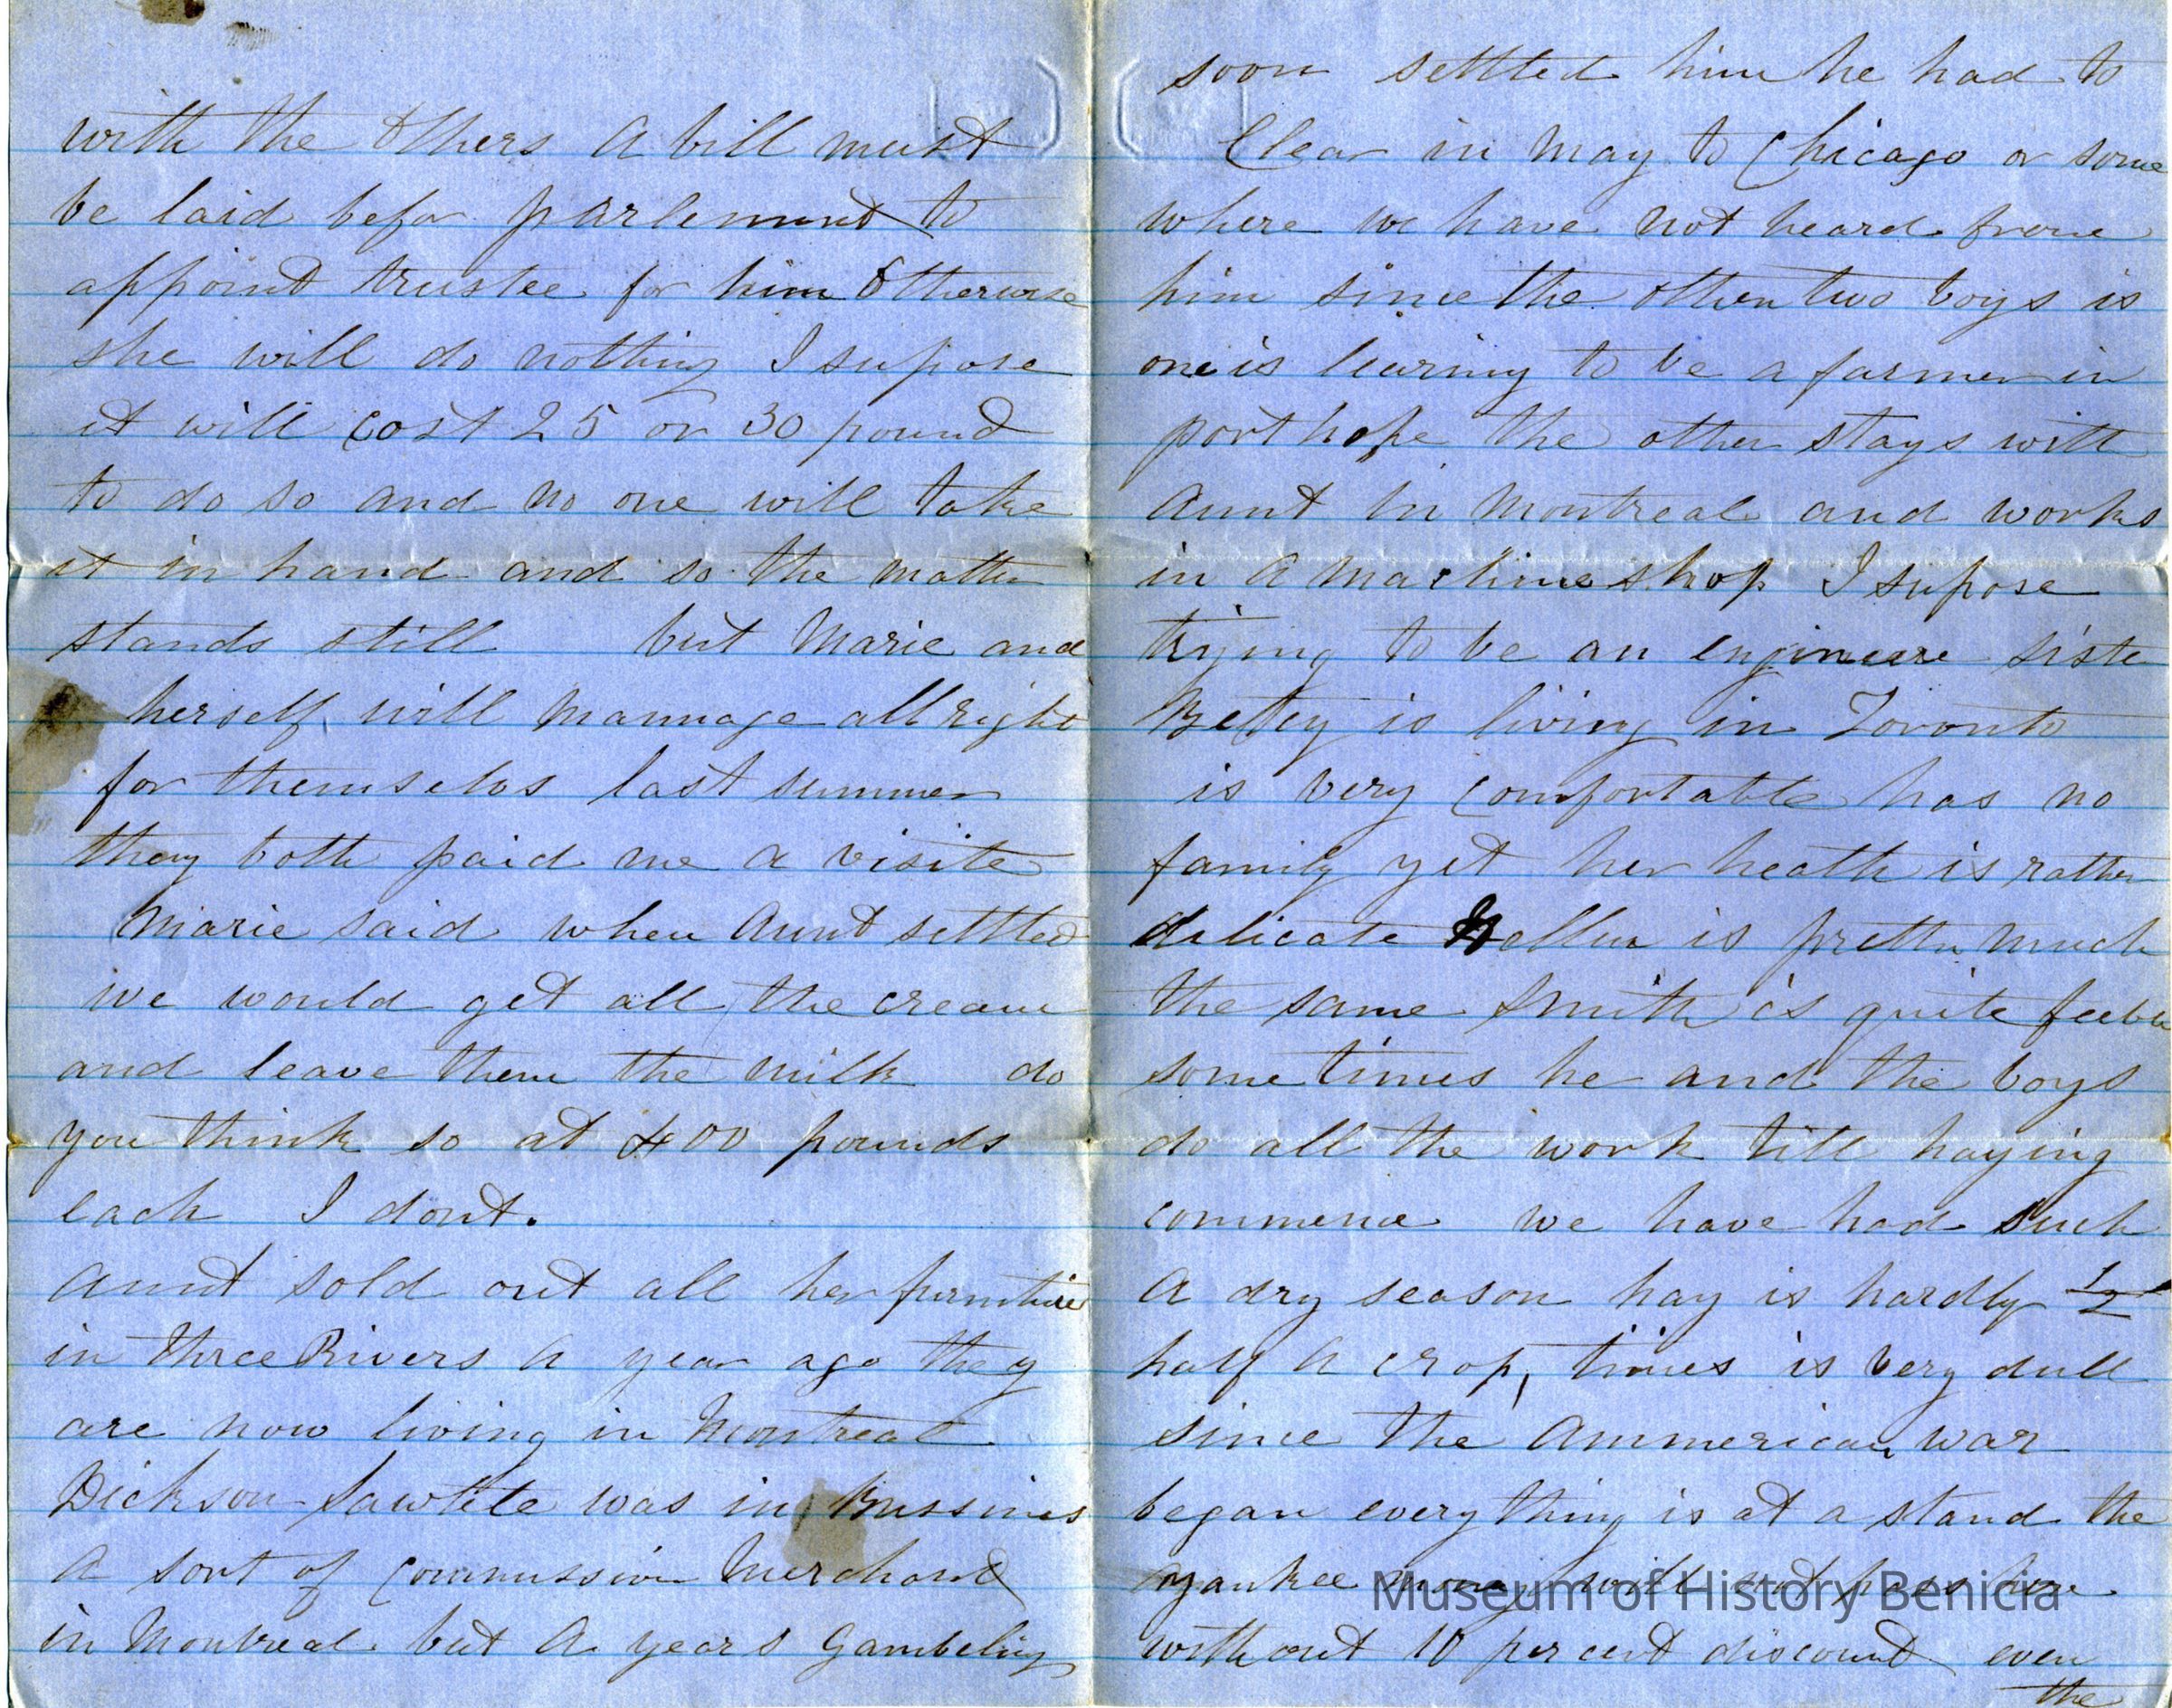 with the others A bill must
be laid befor parlement to
appoint trustee for him otherwise
she will do nothing I supose
it will cost 25 or 30 pound
to do so and no one will take
it in hand and so the matter
stands still but Marie and
herself will mannage all right
for themselvs last summer
they both paid me a visite
Marie said when Aunt settled
we would get all the cream
and leave them the milk do
you think so at 400 pounds
each I dont.
Aunt sold out all her furniture
in Three Rivers A year ago they
are now living in Montreal
Dickson Sawtele was in Bussines
A sort of commission Merchant
in Montreal but A years Gambeling
soon settled him he had to
Clear in May to Chicago or some
where we have not heard from
him since the other two boys is
one is learing to be a farmer in
port hope the other stays with
Aunt in Montreal and works
in A machine shop I supose
trying to be an engineere siste
Betsy is living in Toronto
is very comfortable has no
family yet her heath is rather
delicate Hellen is prettu much
the same Smith is quite feeble
some times he and the boys
do all the work till haying
commence we have had such
A dry season hay is hardly 1/2
half A crop, times is very dull
since the Ammerican war
began every thing is at a stand the
yankee mony will not pass here
with out 10 per cent discount even
the
Museum of History Benicia